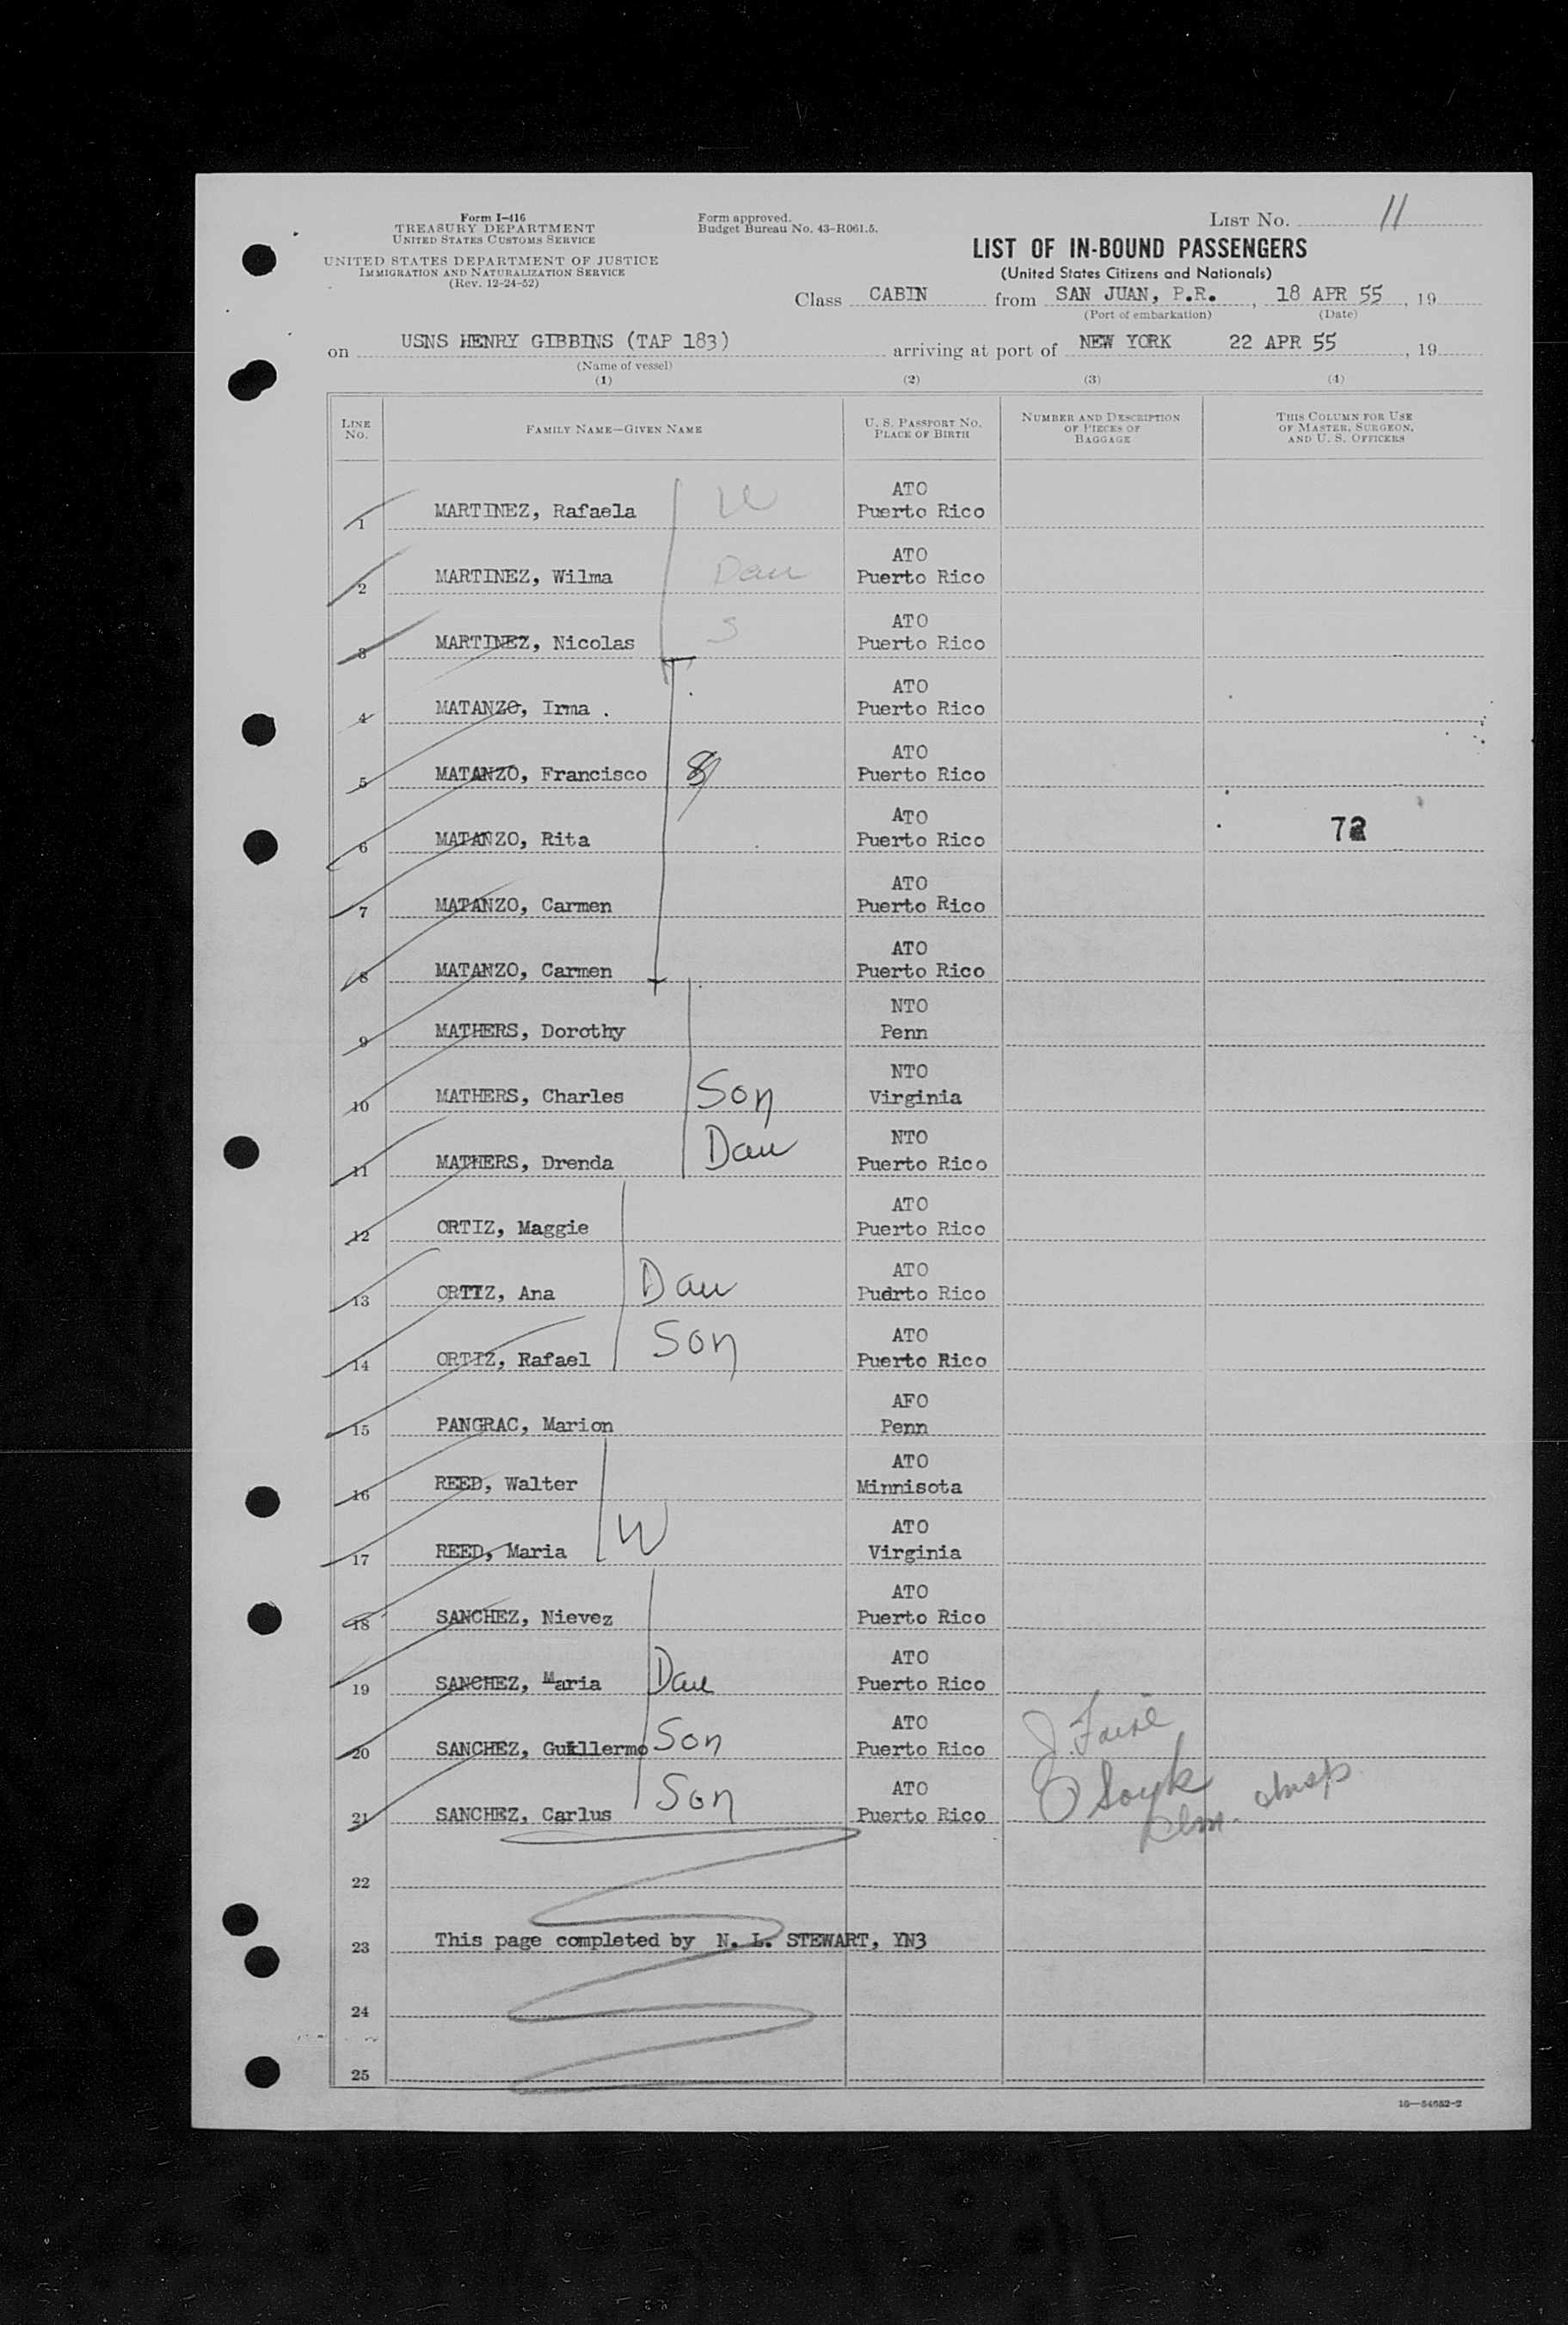 Form I-416
TREASURY DEPARTMENT
UNITED STATES CUSTOMS SERVICE
UNITED STATES DEPARTMENT OF JUSTICE
IMMIGRATION AND NATURALIZATION SERVICE
(Rev. 12-24-52)
Form approved.
Budget Bureau No. 43-R061.5.
LIST NO. 11
LIST OF IN-BOUND PASSENGERS
(United States Citizens and Nationals)
Class CABIN from SAN JUAN, P.R. , 18 APR 55 , 19
(Port of embarkation) (Date)
on USNS HENRY GIBBINS (TAP 183) arriving at port of NEW YORK 22 APR 55 , 19
(Name of vessel)
(1) (2) (3) (4)
LINE NO. FAMILY NAME—GIVEN NAME U. S. PASSPORT NO. PLACE OF BIRTH NUMBER AND DESCRIPTION OF PIECES OF BAGGAGE THIS COLUMN FOR USE OF MASTER, SURGEON, AND U. S. OFFICERS
ATO
1 MARTINEZ, Rafaela W Puerto Rico
ATO
2 MARTINEZ, Wilma Dau Puerto Rico
ATO
3 MARTINEZ, Nicolas S Puerto Rico
ATO
4 MATANZO, Irma . Puerto Rico
ATO
5 MATANZO, Francisco Puerto Rico
ATO
6 MATANZO, Rita Puerto Rico 72
ATO
7 MATANZO, Carmen Puerto Rico
ATO
8 MATANZO, Carmen Puerto Rico
NTO
9 MATHERS, Dorothy Penn
NTO
10 MATHERS, Charles Son Virginia
NTO
11 MATHERS, Drenda Dau Puerto Rico
ATO
12 ORTIZ, Maggie Puerto Rico
ATO
13 ORTIZ, Ana Dau Puerto Rico
ATO
14 ORTIZ, Rafael Son Puerto Rico
AFO
15 PANGRAC, Marion Penn
ATO
16 REED, Walter Minnisota
ATO
17 REED, Maria W Virginia
ATO
18 SANCHEZ, Nievez Puerto Rico
ATO
19 SANCHEZ, Maria Dau Puerto Rico
ATO
20 SANCHEZ, Guillermo Son Puerto Rico
ATO
21 SANCHEZ, Carlus Son Puerto Rico
22
23 This page completed by N. L. STEWART, YN3
24
25
16—54652-2